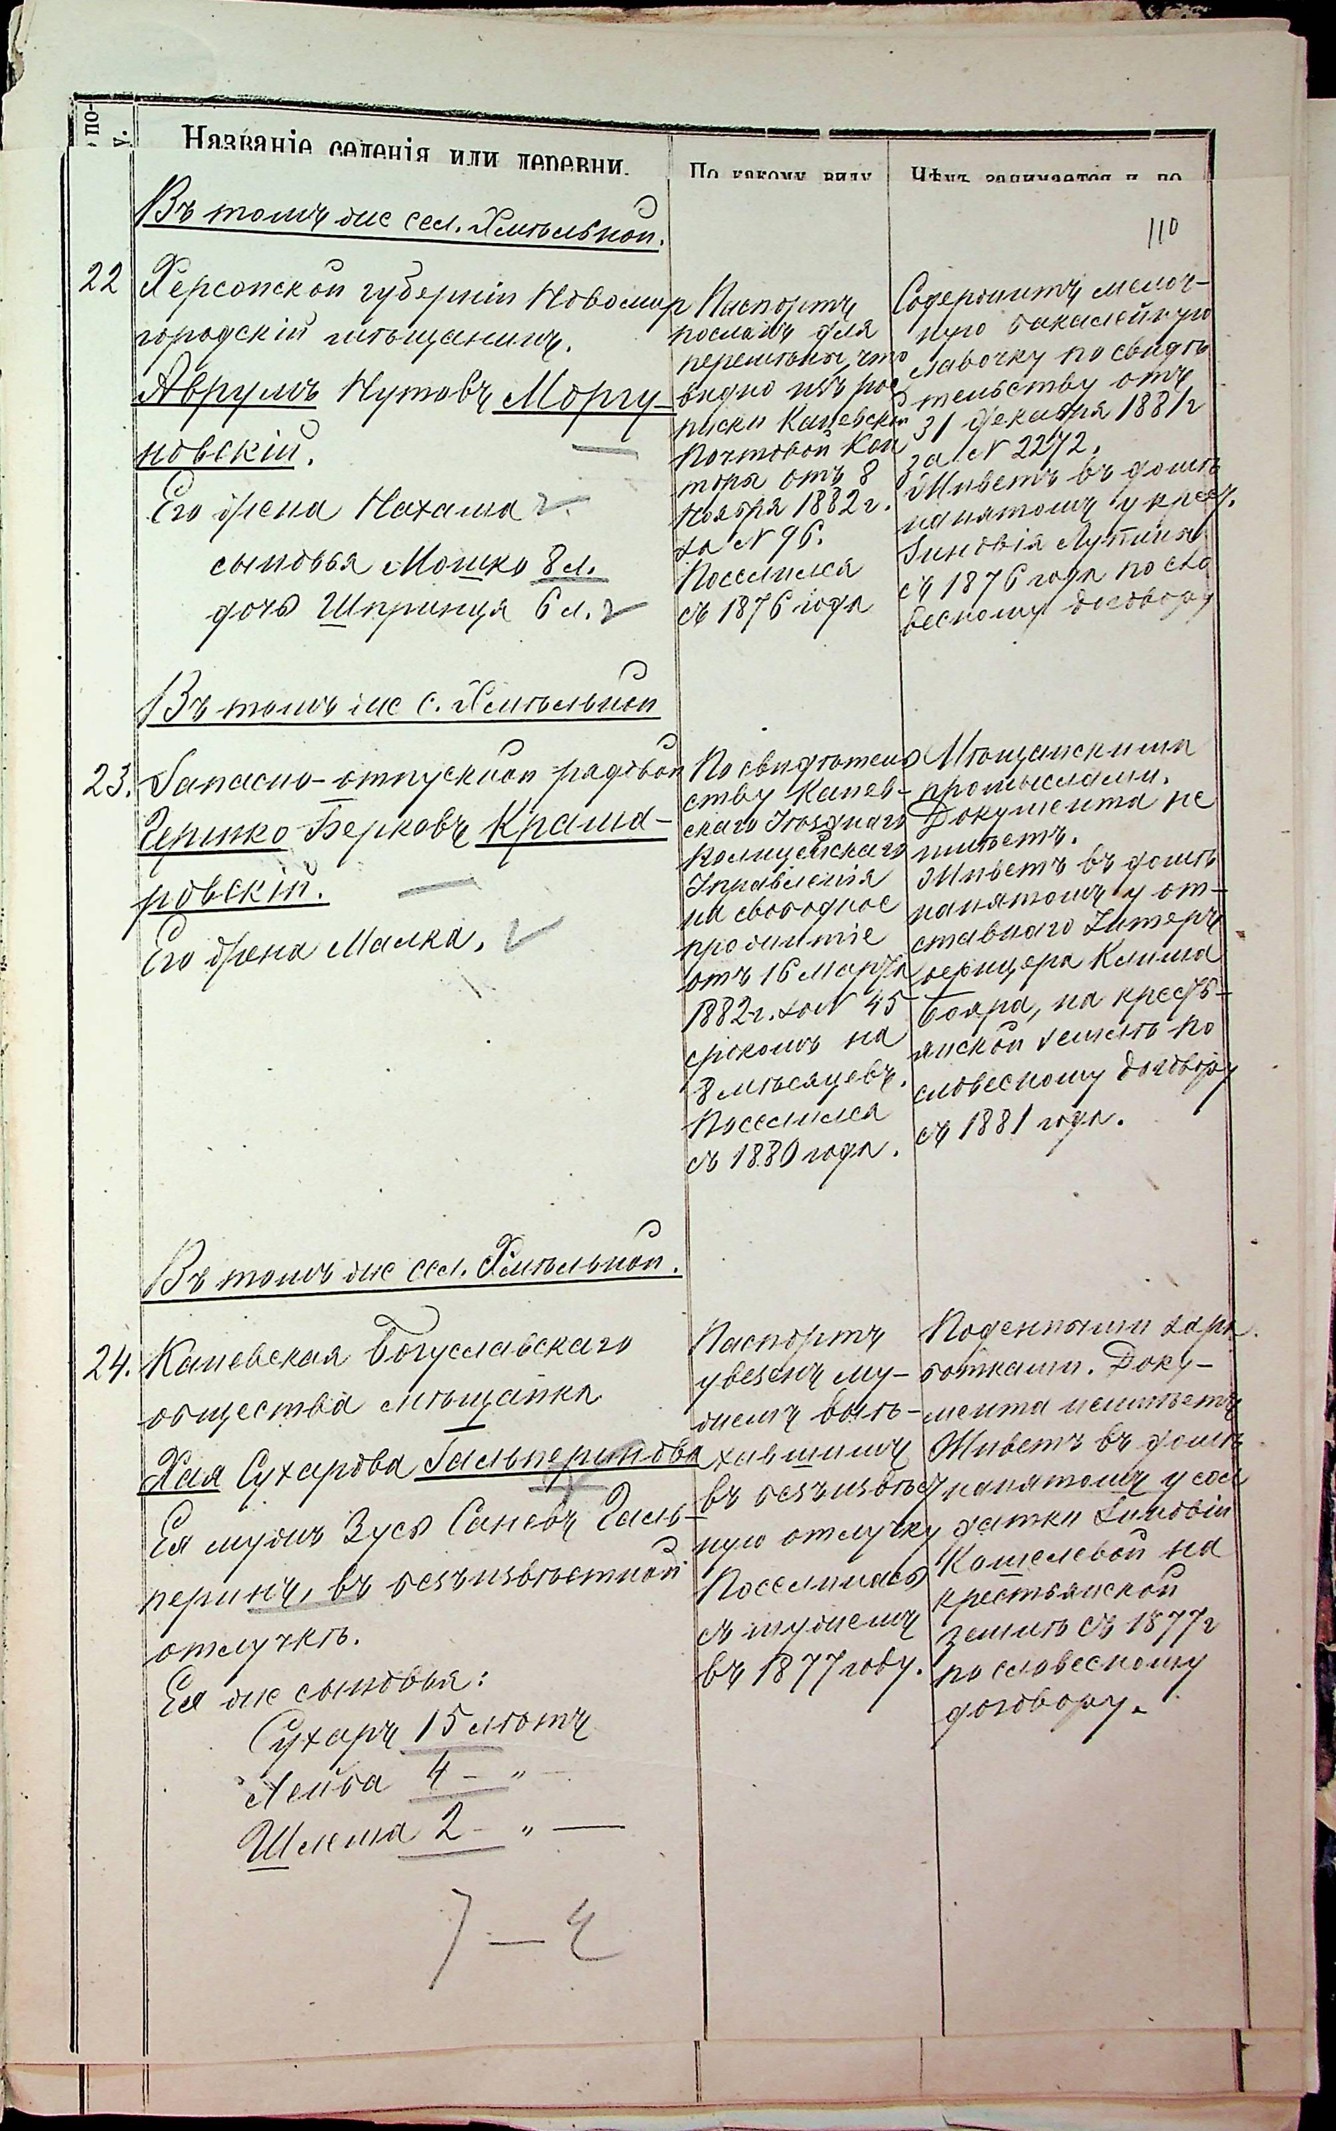 по-
у.
Названіе селенія или деревни.
По какому виду
Чѣмъ занимается и по
110
Въ томъ же сел. Хмѣльной.
22
Херсонской губерніи Новомир
городскій мѣщанинъ.
Аврумъ Нутовъ Моргу-
новскій.
Его жена Нахама
сыновья Мошко 8 л.
дочь Шпринца 6 л.
Паспортъ
посланъ для
перемѣны, что
видно изъ рос
писки Каневской
Почтовой Кон
торы отъ 8
Ноября 1882 г.
за № 96.
Поселился
съ 1876 года
Содержитъ мелоч-
ную бакалейную
лавочку по свидѣ
тельству отъ
31 Декабря 1881 г
за № 2272.
Живетъ въ домѣ
нанятомъ у крест.
Зиновія
съ 1876 года по сло
весному договору
Въ томъ же с. Хмѣльной
23.
Запасно-отпускной рядовой
Гершко Берковъ Крама-
ровскій.
Его жена Малка.
По свидѣтель
ству Канев-
скаго Уѣзднаго
Полицейскаго
Управленія
на свободное
прожитіе
отъ 16 Марта
1882 г. за № 45
срокомъ на
8 мѣсяцевъ.
Поселился
съ 1880 года.
Мѣщанскими
промыслами.
Документа не
имѣетъ.
Живетъ въ домѣ
нанятомъ у от-
ставного Унтеръ
офицера Клима
Бояра, на кресть-
янской землѣ по
словесному договору
съ 1881 года.
Въ томъ же сел. Хмѣльной.
24.
Каневская Богуславскаго
общества мѣщанка
Хая Сухарова Гальперинова
Ея мужъ Зусь Саневъ Галь-
перинъ, въ безъизвѣстной
отлучкѣ.
Ея же сыновья:
Сухаръ 15 лѣтъ
Лейба 4 - "
Шлема 2 - " —
Паспортъ
увезенъ му-
жемъ выѣ-
хавшимъ
въ безъизвѣст
ную отлучку
Поселилась
съ мужемъ
въ 1877 году.
Поденными зара
ботками. Доку-
мента неимѣетъ
Живетъ въ домѣ
нанятомъ у сол
датки Зиновіи
Кошелевой на
крестьянской
землѣ съ 1877 г
по словесному
договору.
7 — 4